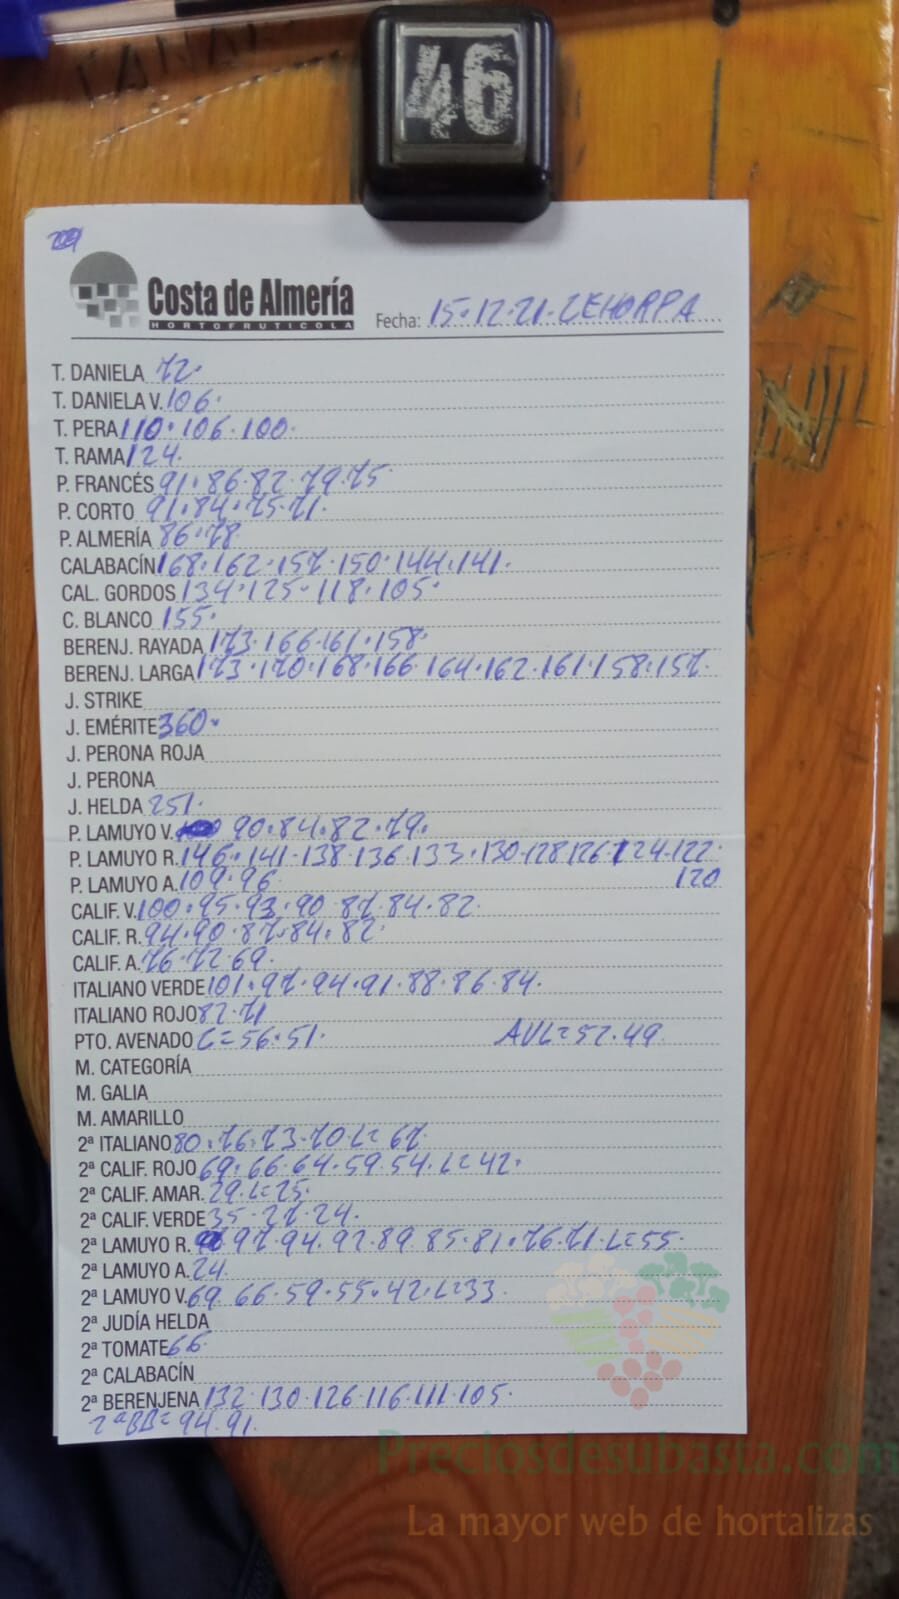 46
Costa de Almería
HORTOFRUTICOLA
Fecha: 15·12·21·CEHORPA
T. DANIELA 72·
T. DANIELA V. 106·
T. PERA 110·106·100·
T. RAMA 124·
P. FRANCÉS 91·86·82·79·75
P. CORTO 91·84·75·71·
P. ALMERÍA 86·78
CALABACÍN 168·162·157·150·144·141·
CAL. GORDOS 134·125·118·105·
C. BLANCO 155·
BERENJ. RAYADA 173·166·161·158·
BERENJ. LARGA 173·170·168·166·164·162·161·158·157·
J. STRIKE
J. EMÉRITE 360·
J. PERONA ROJA
J. PERONA
J. HELDA 251·
P. LAMUYO V. 90·84·82·79·
P. LAMUYO R. 146·141·138·136·133·130·128·126·124·122·
120
P. LAMUYO A. 109·96
CALIF. V. 100·95·93·90·87·84·82·
CALIF. R. 94·90·87·84·82·
CALIF. A. 76·72·69·
ITALIANO VERDE 101·97·94·91·88·86·84·
ITALIANO ROJO 82·71
PTO. AVENADO C=56·51· AVL=57·49
M. CATEGORÍA
M. GALIA
M. AMARILLO
2ª ITALIANO 80·76·73·70 L=67·
2ª CALIF. ROJO 69·66·64·59·54·L=42·
2ª CALIF. AMAR. 29·L=25·
2ª CALIF. VERDE 35·27·24·
2ª LAMUYO R. 97·94·92·89·85·81·76·71·L=55·
2ª LAMUYO A. 24
2ª LAMUYO V. 69·66·59·55·42·L=33·
2ª JUDÍA HELDA
2ª TOMATE 66
2ª CALABACÍN
2ª BERENJENA 132·130·126·116·111·105·
2ªBB=94·91·
Preciosdesubasta.com
La mayor web de hortalizas